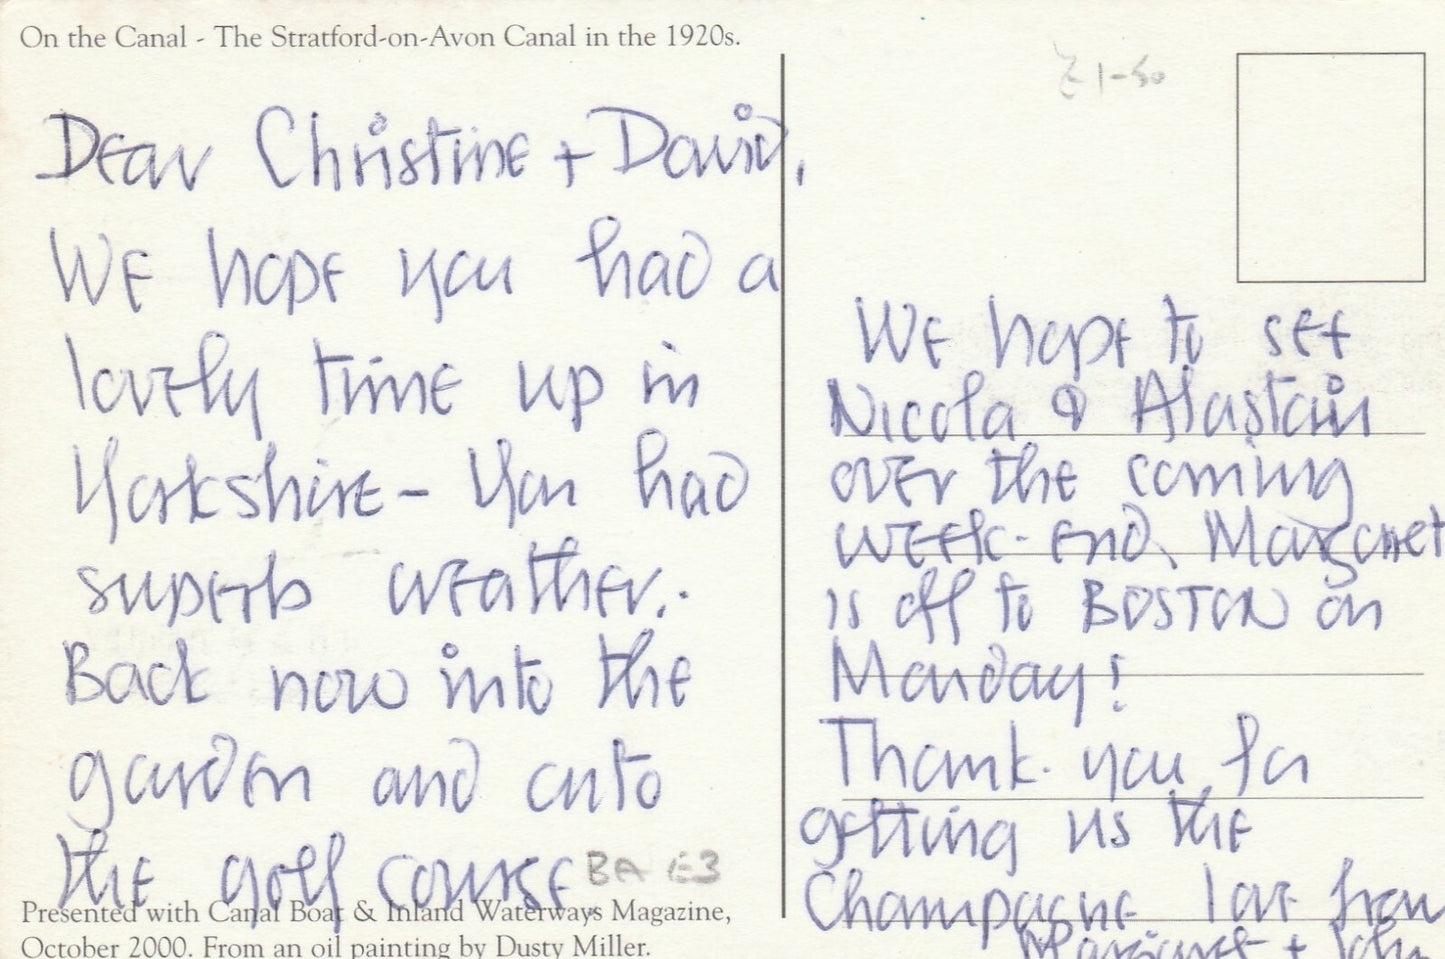 On the Canal - The Stratford-on-Avon Canal in the 1920s.
Dear Christine + David,
We hope you had a
lovely time up in
Yorkshire - You had
superb weather.
Back now into the
garden and onto
the golf course.
BA E3
Presented with Canal Boat & Inland Waterways Magazine,
October 2000. From an oil painting by Dusty Miller.
£1-50
We hope to see
Nicola & Alastair
over the coming
week-end, Margaret
is off to BOSTON on
Monday!
Thank you for
getting us the
Champagne love from
Margaret + John